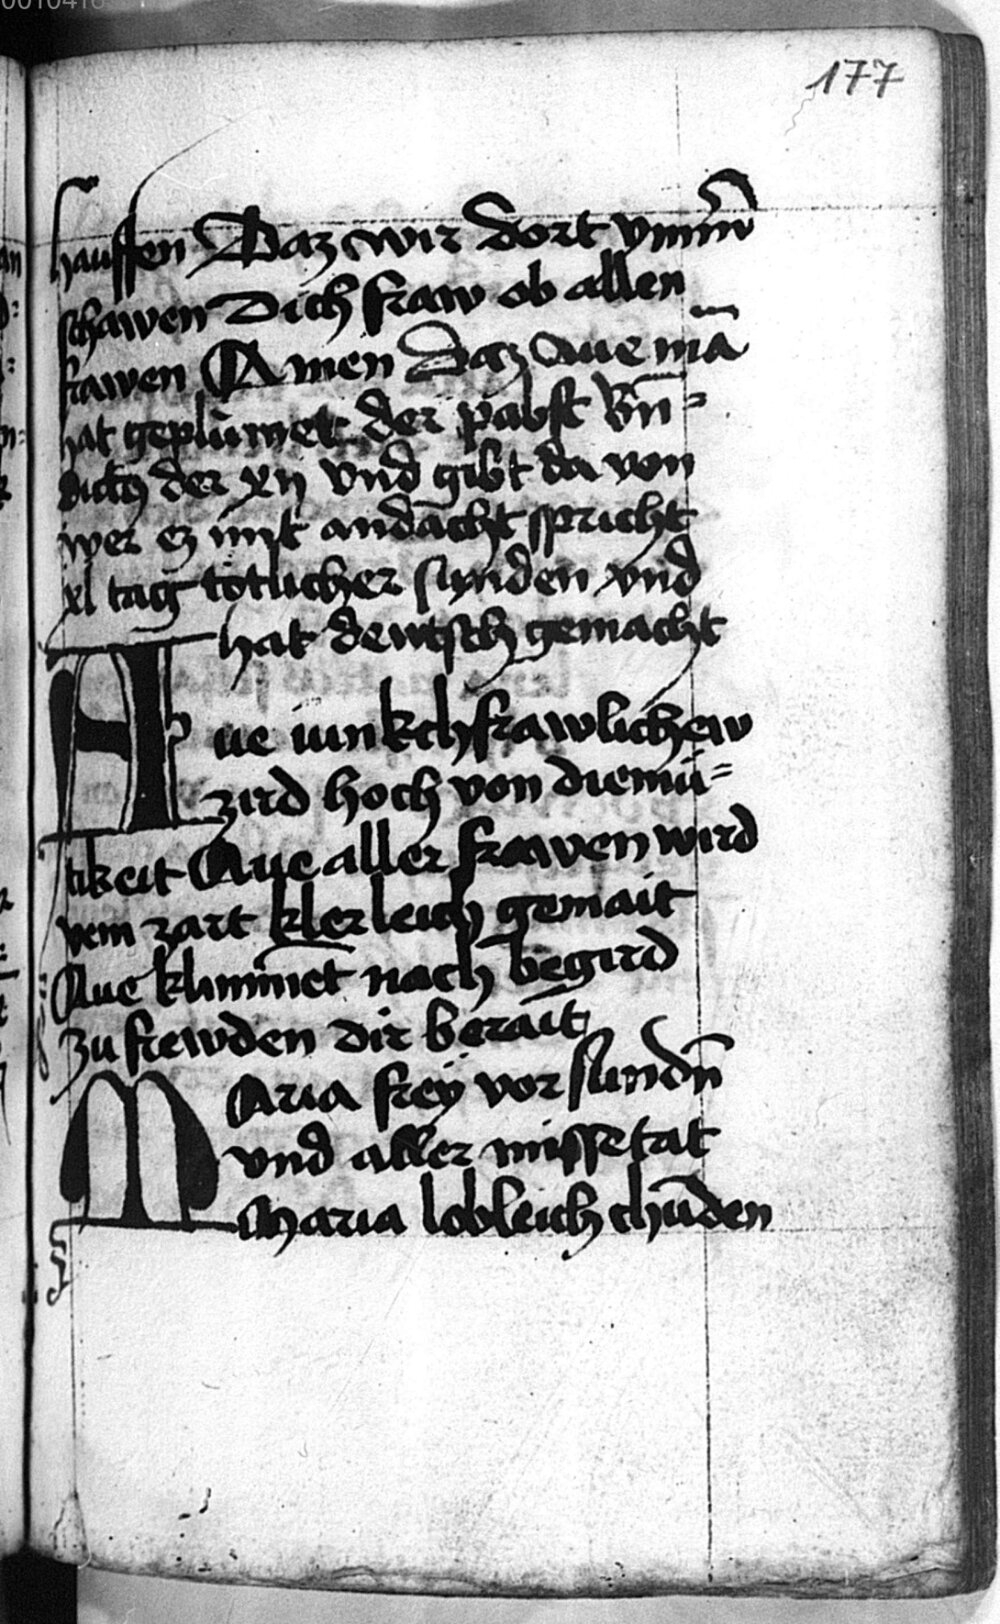 177
hauffen Daz wir dort ymm̄
schawen Dich fraw ob allen
frawen Amen Daz Aue mā
hat geplümet der pabst Bn̄=
dict9 der xij vnd gibt da von
wer ez mit andacht spricht
xl tag totlicher sunden vnd
hat dewtsch gemacht
Aue iunkchfrawlichew
zird hoch von diemü=
tikeit Aue aller frawen wird
vein zart klerleich gemait
Aue klimm̄et nach begird
zu frewden dir berait
Maria frey vor sundn̄
vnd aller missetat
Maria lobleich chūden